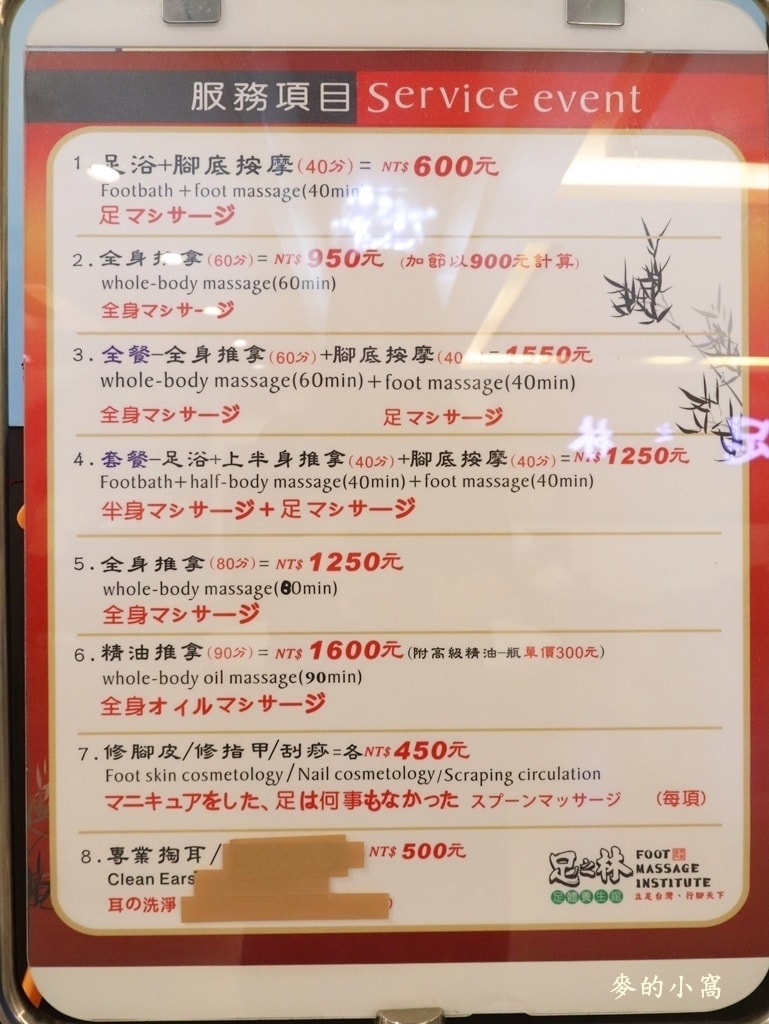 服務項目 Service event
1. 足浴+腳底按摩(40分) = NT$ 600元
Footbath + foot massage(40min
足マシサージ
2. 全身推拿(60分) = NT$ 950元 (加節以900元計算)
whole-body massage(60min)
全身マシサージ
3. 全餐-全身推拿(60分)+腳底按摩(40 = 1550元
whole-body massage(60min)+foot massage(40min)
全身マシサージ 足マシサージ
4. 套餐-足浴+上半身推拿(40分)+腳底按摩(40分)=NT$1250元
Footbath+half-body massage(40min)+foot massage(40min)
半身マシサージ+足マシサージ
5. 全身推拿(80分)= NT$ 1250元
whole-body massage(80min)
全身マシサージ
6. 精油推拿(90分)= NT$ 1600元(附高級精油一瓶單價300元)
whole-body oil massage(90min)
全身オィルマシサージ
7. 修腳皮/修指甲/刮痧=各NT$450元
Foot skin cosmetology/Nail cosmetology/Scraping circulation
マニキュアをした、足は何事もなかった スプーンマッサージ (每項)
8. 專業掏耳/ NT$ 500元
Clean Ears
耳の洗淨 )
足之林 FOOT MASSAGE INSTITUTE
足體養生館 立足台灣、行腳天下
麥的小窩